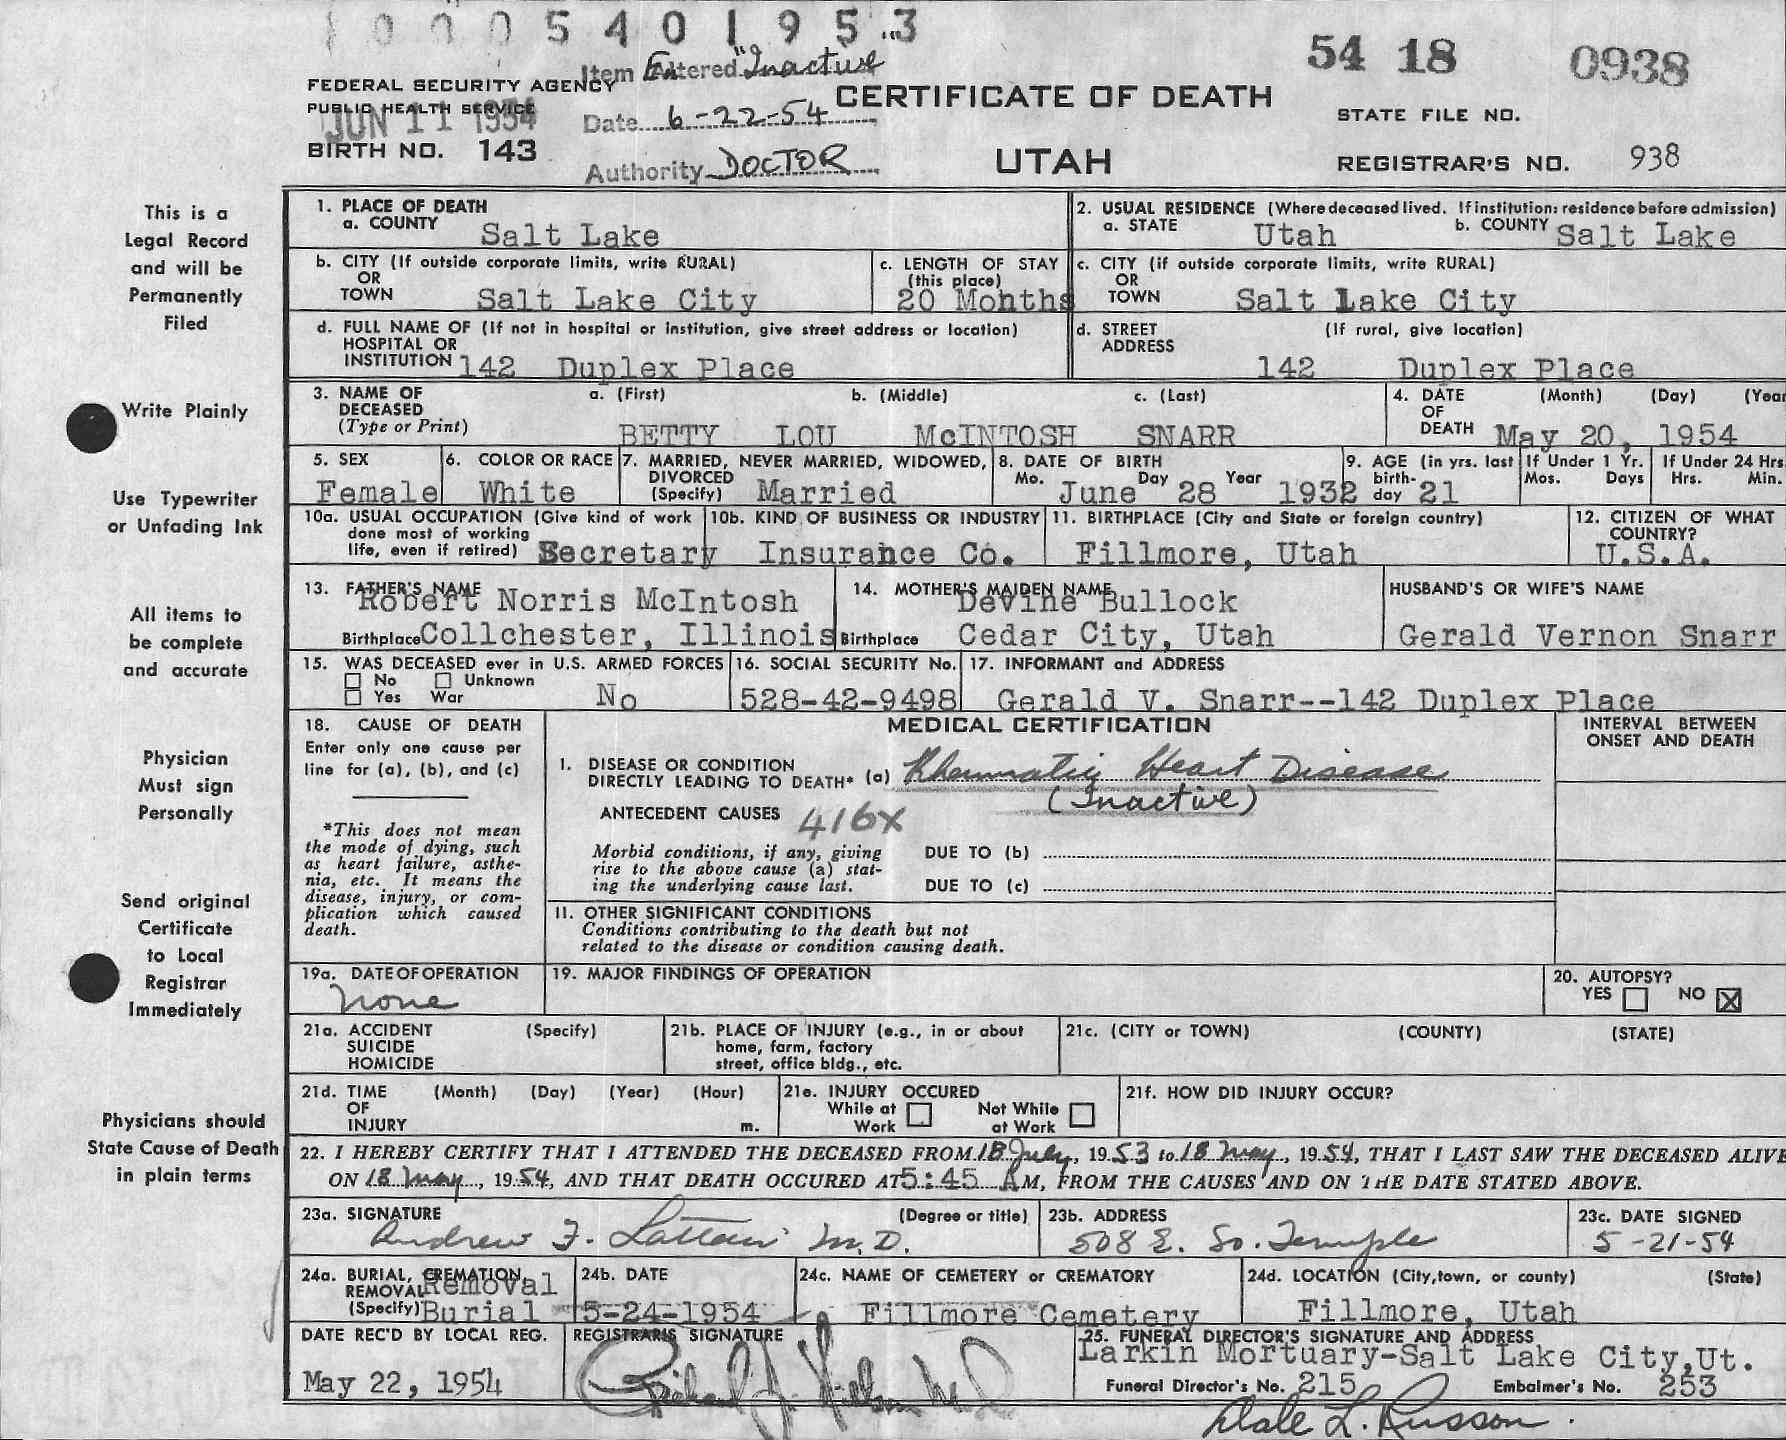 1 0 0 0 5 4 0 1 9 5 3
Item Entered "Inactive
54 18 0938
FEDERAL SECURITY AGENCY
PUBLIC HEALTH SERVICE
JUN 11 1954
Date 6-22-54
CERTIFICATE OF DEATH
STATE FILE NO.
BIRTH NO. 143
Authority DOCTOR
UTAH
REGISTRAR'S NO. 938
This is a
Legal Record
and will be
Permanently
Filed
Write Plainly
Use Typewriter
or Unfading Ink
All items to
be complete
and accurate
Physician
Must sign
Personally
Send original
Certificate
to Local
Registrar
Immediately
Physicians should
State Cause of Death
in plain terms
1. PLACE OF DEATH
a. COUNTY Salt Lake
2. USUAL RESIDENCE (Where deceased lived. If institution: residence before admission)
a. STATE Utah b. COUNTY Salt Lake
b. CITY (If outside corporate limits, write RURAL)
OR
TOWN Salt Lake City
c. LENGTH OF STAY
(this place)
20 Months
c. CITY (if outside corporate limits, write RURAL)
OR
TOWN Salt Lake City
d. FULL NAME OF (If not in hospital or institution, give street address or location)
HOSPITAL OR
INSTITUTION 142 Duplex Place
d. STREET (If rural, give location)
ADDRESS
142 Duplex Place
3. NAME OF a. (First) b. (Middle) c. (Last)
DECEASED
(Type or Print) BETTY LOU McINTOSH SNARR
4. DATE (Month) (Day) (Year
OF
DEATH May 20, 1954
5. SEX
Female
6. COLOR OR RACE
White
7. MARRIED, NEVER MARRIED, WIDOWED,
DIVORCED
(Specify) Married
8. DATE OF BIRTH
Mo. Day Year
June 28 1932
9. AGE (in yrs. last
birth-
day 21
If Under 1 Yr.
Mos. Days
If Under 24 Hrs
Hrs. Min.
10a. USUAL OCCUPATION (Give kind of work
done most of working
life, even if retired) Secretary
10b. KIND OF BUSINESS OR INDUSTRY
Insurance Co.
11. BIRTHPLACE (City and State or foreign country)
Fillmore, Utah
12. CITIZEN OF WHAT
COUNTRY?
U.S.A.
13. FATHER'S NAME
Robert Norris McIntosh
Birthplace Collchester, Illinois
14. MOTHER'S MAIDEN NAME
DeVine Bullock
Birthplace Cedar City, Utah
HUSBAND'S OR WIFE'S NAME
Gerald Vernon Snarr
15. WAS DECEASED ever in U.S. ARMED FORCES
No Unknown
Yes War No
16. SOCIAL SECURITY No.
528-42-9498
17. INFORMANT and ADDRESS
Gerald V. Snarr--142 Duplex Place
18. CAUSE OF DEATH
Enter only one cause per
line for (a), (b), and (c)
*This does not mean
the mode of dying, such
as heart failure, asthe-
nia, etc. It means the
disease, injury, or com-
plication which caused
death.
MEDICAL CERTIFICATION
INTERVAL BETWEEN
ONSET AND DEATH
I. DISEASE OR CONDITION
DIRECTLY LEADING TO DEATH* (a) Rheumatic Heart Disease
(Inactive)
ANTECEDENT CAUSES 416X
Morbid conditions, if any, giving
rise to the above cause (a) stat-
ing the underlying cause last.
DUE TO (b)
DUE TO (c)
II. OTHER SIGNIFICANT CONDITIONS
Conditions contributing to the death but not
related to the disease or condition causing death.
19a. DATE OF OPERATION
none
19. MAJOR FINDINGS OF OPERATION
20. AUTOPSY?
YES NO X
21a. ACCIDENT (Specify)
SUICIDE
HOMICIDE
21b. PLACE OF INJURY (e.g., in or about
home, farm, factory
street, office bldg., etc.
21c. (CITY or TOWN) (COUNTY) (STATE)
21d. TIME (Month) (Day) (Year) (Hour)
OF
INJURY m.
21e. INJURY OCCURED
While at Work
Not While at Work
21f. HOW DID INJURY OCCUR?
22. I HEREBY CERTIFY THAT I ATTENDED THE DECEASED FROM 18 July, 1953 to 18 May, 1954, THAT I LAST SAW THE DECEASED ALIVE
ON 18 May, 1954, AND THAT DEATH OCCURED AT 5:45 AM, FROM THE CAUSES AND ON THE DATE STATED ABOVE.
23a. SIGNATURE (Degree or title)
Andrew F. M.D.
23b. ADDRESS
508 E. So. Temple
23c. DATE SIGNED
5-21-54
24a. BURIAL, CREMATION,
REMOVAL Removal
(Specify) Burial
24b. DATE
5-24-1954
24c. NAME OF CEMETERY or CREMATORY
Fillmore Cemetery
24d. LOCATION (City, town, or county) (State)
Fillmore, Utah
DATE REC'D BY LOCAL REG.
May 22, 1954
REGISTRARS SIGNATURE
Richard J. M.D.
25. FUNERAL DIRECTOR'S SIGNATURE AND ADDRESS
Larkin Mortuary-Salt Lake City,Ut.
Funeral Director's No. 215 Embalmer's No. 253
Dale L. Russon.